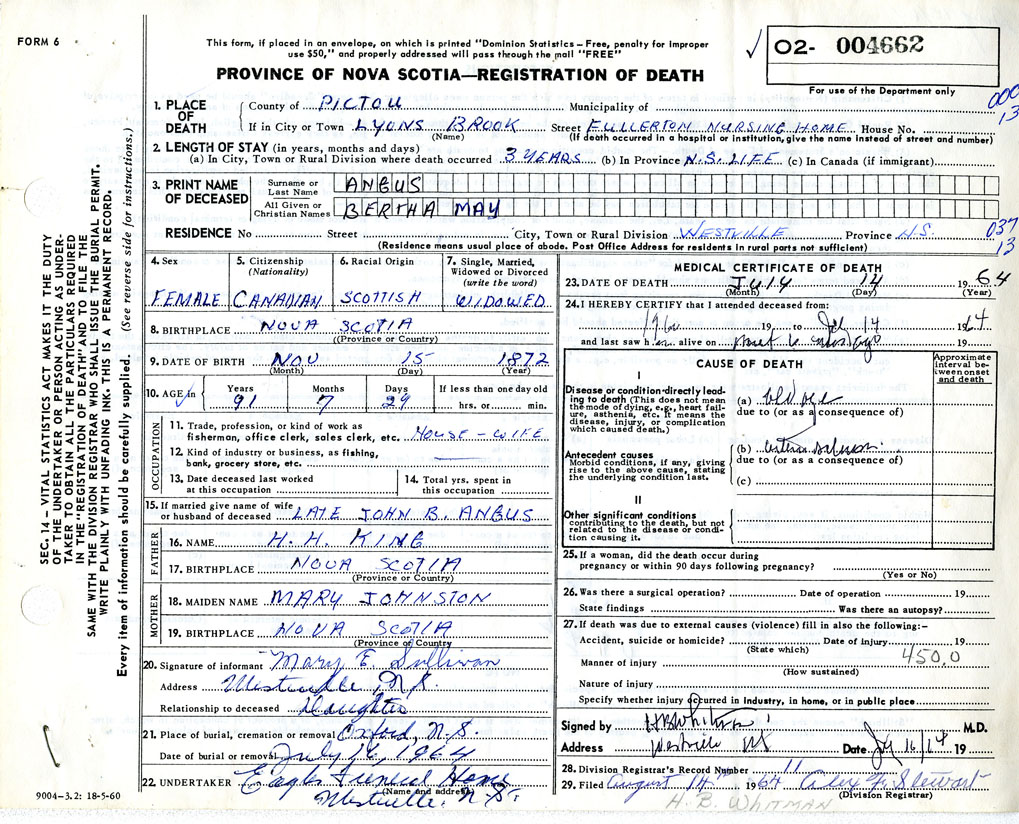 FORM 6
This form, if placed in an envelope, on which is printed "Dominion Statistics – Free, penalty for improper
use $50," and properly addressed will pass through the mail "FREE"
PROVINCE OF NOVA SCOTIA—REGISTRATION OF DEATH
✓ 02- 004662
For use of the Department only
000
13
1. PLACE OF DEATH
County of PICTOU Municipality of
If in City or Town LYONS BROOK Street FULLERTON NURSING HOME House No.
(Name) (If death occurred in a hospital or institution, give the name instead of street and number)
2. LENGTH OF STAY (in years, months and days)
(a) In City, Town or Rural Division where death occurred 3 YEARS (b) In Province N.S. LIFE (c) In Canada (if immigrant)
3. PRINT NAME OF DECEASED
Surname or Last Name ANGUS
All Given or Christian Names BERTHA MAY
RESIDENCE No Street City, Town or Rural Division WESTVILLE Province N.S.
037
13
(Residence means usual place of abode. Post Office Address for residents in rural parts not sufficient)
4. Sex FEMALE
5. Citizenship (Nationality) CANADIAN
6. Racial Origin SCOTTISH
7. Single, Married, Widowed or Divorced (write the word) WIDOWED
8. BIRTHPLACE NOVA SCOTIA
(Province or Country)
9. DATE OF BIRTH NOV 15 1872
(Month) (Day) (Year)
10. AGE in Years 91 Months 7 Days 29 If less than one day old hrs. or min.
OCCUPATION
11. Trade, profession, or kind of work as
fisherman, office clerk, sales clerk, etc. HOUSE - WIFE
12. Kind of industry or business, as fishing,
bank, grocery store, etc.
13. Date deceased last worked
at this occupation
14. Total yrs. spent in
this occupation
15. If married give name of wife
or husband of deceased LATE JOHN B. ANGUS
FATHER
16. NAME H. H. KING
17. BIRTHPLACE NOVA SCOTIA
(Province or Country)
MOTHER
18. MAIDEN NAME MARY JOHNSTON
19. BIRTHPLACE NOVA SCOTIA
(Province or Country)
20. Signature of informant Mary E. Sullivan
Address Westville, N.S.
Relationship to deceased Daughter
21. Place of burial, cremation or removal Oxford, N.S.
Date of burial or removal July 16, 1964
22. UNDERTAKER Eagles Funeral Home
(Name and address)
Westville, N.S.
MEDICAL CERTIFICATE OF DEATH
23. DATE OF DEATH July 14 1964
(Month) (Day) (Year)
24. I HEREBY CERTIFY that I attended deceased from:
19 to July 14 1964
and last saw h alive on 19
CAUSE OF DEATH
Approximate interval between onset and death
I
Disease or condition directly leading to death (This does not mean
the mode of dying, e.g., heart failure, asthenia, etc. It means the
disease, injury, or complication
which caused death.)
(a)
due to (or as a consequence of)
Antecedent causes
Morbid conditions, if any, giving
rise to the above cause, stating
the underlying condition last.
(b)
due to (or as a consequence of)
(c)
II
Other significant conditions
contributing to the death, but not
related to the disease or condition causing it.
25. If a woman, did the death occur during
pregnancy or within 90 days following pregnancy?
(Yes or No)
26. Was there a surgical operation? Date of operation 19
State findings Was there an autopsy?
27. If death was due to external causes (violence) fill in also the following:–
Accident, suicide or homicide? Date of injury 19
(State which)
450.0
Manner of injury
(How sustained)
Nature of injury
Specify whether injury occurred in industry, in home, or in public place
Signed by HB Whitman M.D.
Address Westville NS Date July 16/64 19
28. Division Registrar's Record Number 11
29. Filed August 14th 1964 Stewart
(Division Registrar)
H. B. WHITMAN
9004-3.2: 18-5-60
SEC. 14 – VITAL STATISTICS ACT MAKES IT THE DUTY
OF THE UNDERTAKER OR PERSON ACTING AS UNDER-
TAKER TO OBTAIN ALL THE PARTICULARS REQUIRED
IN THE "REGISTRATION OF DEATH" AND TO FILE THE
SAME WITH THE DIVISION REGISTRAR WHO SHALL ISSUE THE BURIAL PERMIT.
WRITE PLAINLY WITH UNFADING INK. THIS IS A PERMANENT RECORD.
Every item of information should be carefully supplied. (See reverse side for instructions.)